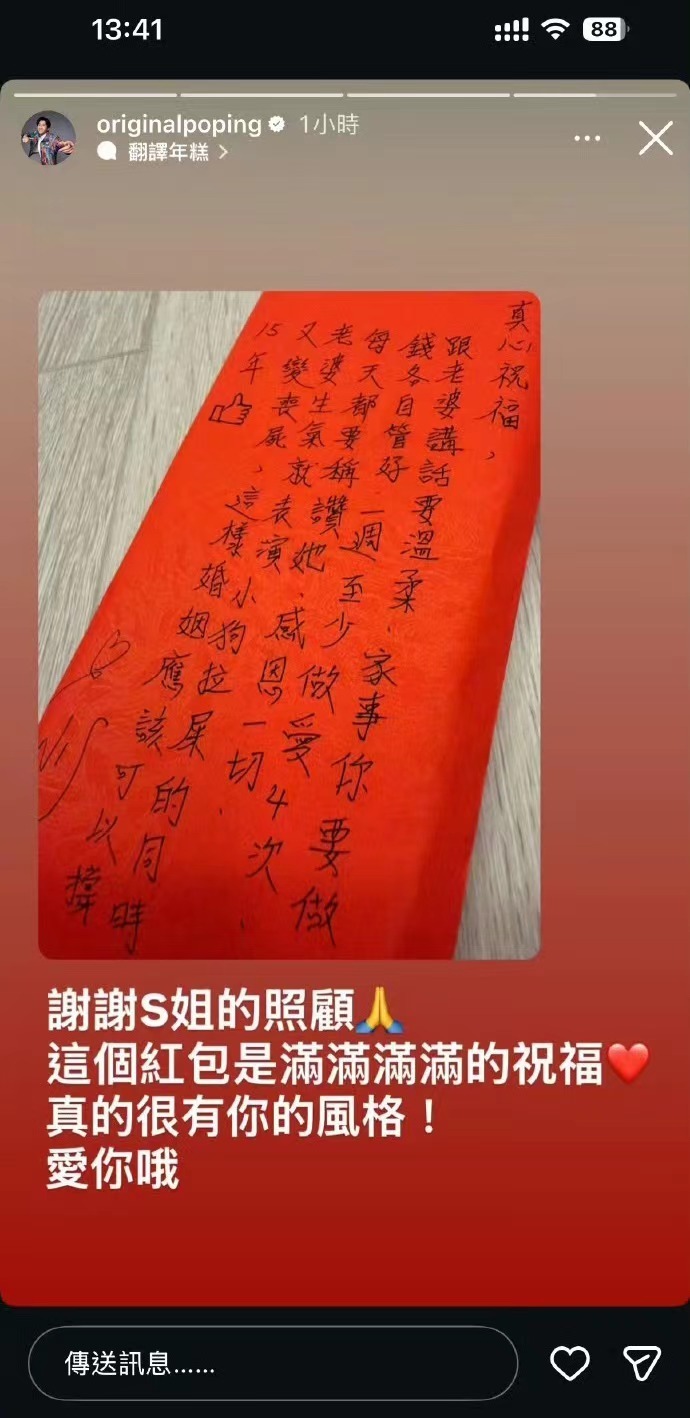 13:41
88
originalpoping 1小時
翻譯年糕 >
真心祝福，
跟老婆講話要溫柔、家事你要做
錢各自管好 一週至少做愛4次、
每天都要稱讚她、感恩一切、
老婆生氣就表演小狗拉屎的同時
又變喪屍，這樣婚姻應該可以撐
15年
謝謝S姐的照顧🙏
這個紅包是滿滿滿滿的祝福❤️
真的很有你的風格！
愛你哦
傳送訊息......